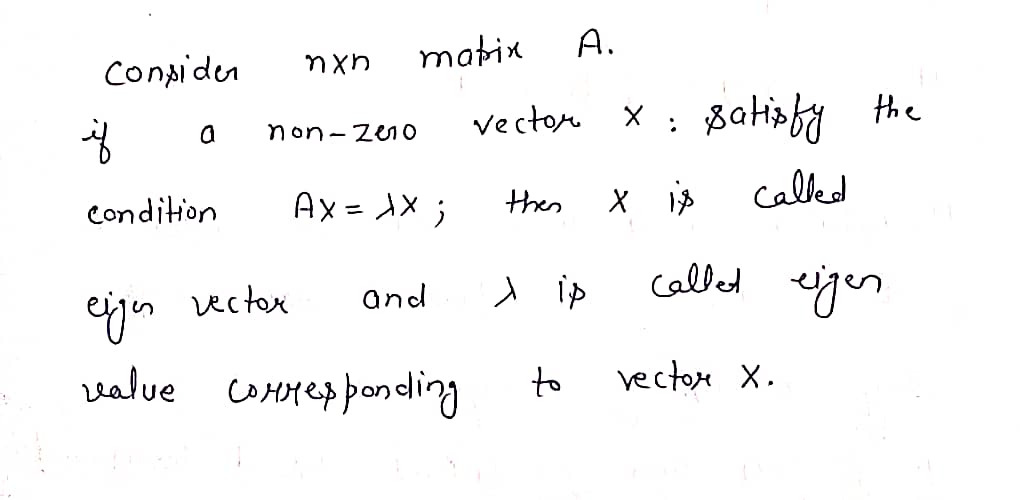 Consider nxn matrix A.
if a non-zero vector X : satisfy the
condition AX = λX ; then X is called
eigen vector and λ is called eigen
value corresponding to vector X.